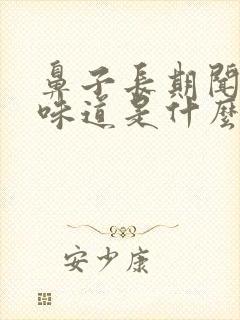 鼻子長期聞
味道是什麼
安少康